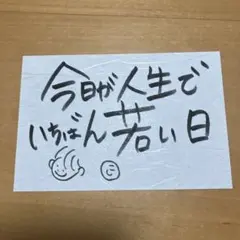 今日が人生で
いちばん若い日